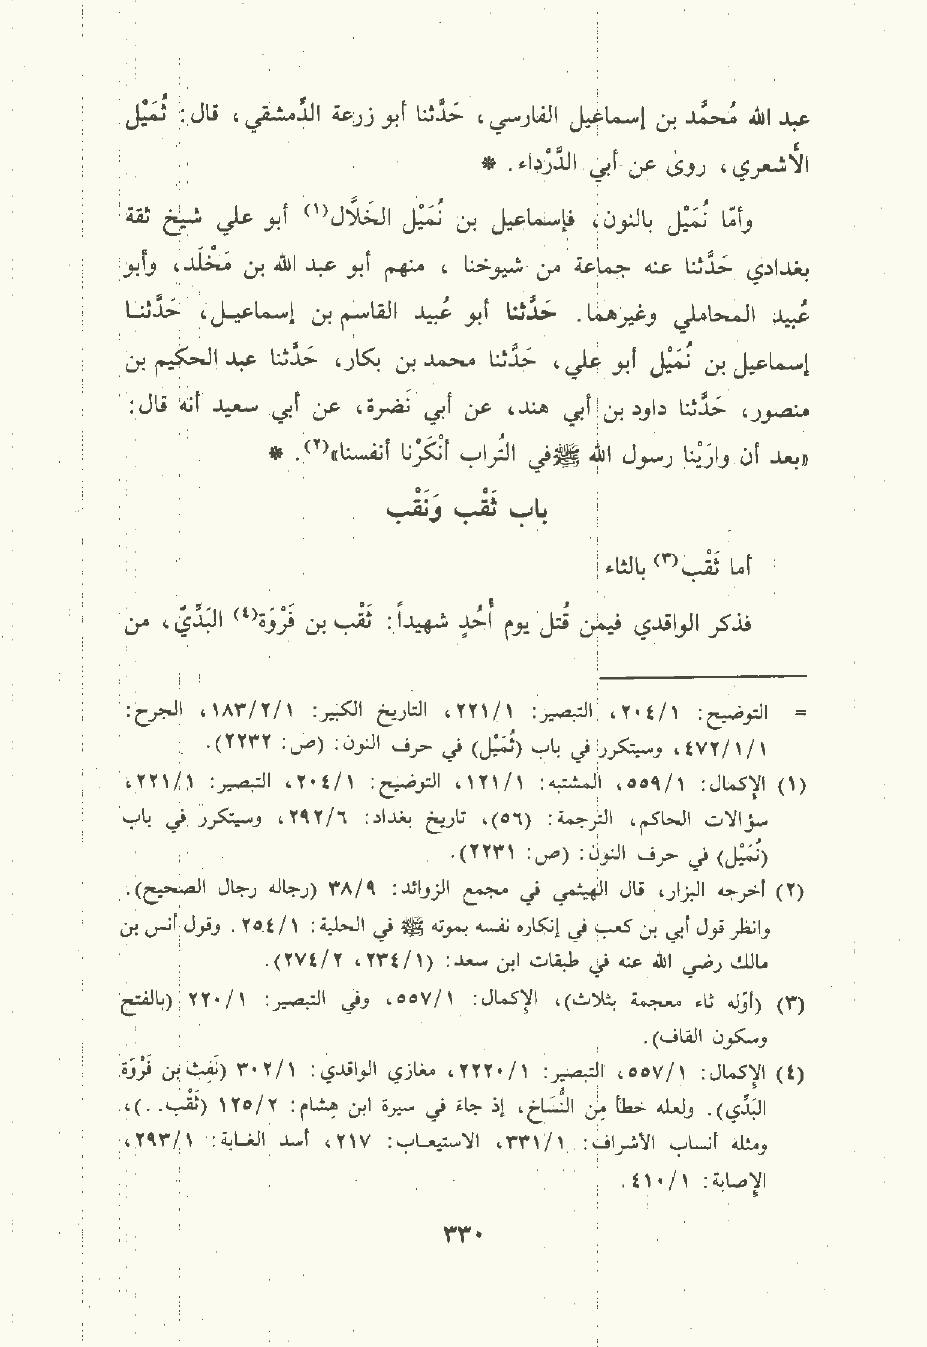 عبد الله مُحمَّد بن إسماعيل الفارسي، حَدَّثنا أبو زرعة الدِّمشقي، قال: ثُمَيْل
الأشعري، روىٰ عن أبي الدَّرْداء. *
وأمّا نُمَيْل بالنون، فإسماعيل بن نُمَيْل الخَلَّال(١) أبو علي شيخ ثقة
بغدادي حَدَّثنا عنه جماعة من شيوخنا، منهم أبو عبد الله بن مَخْلَد، وأبو
عُبيد المحاملي وغيرهما. حَدَّثنا أبو عُبيد القاسم بن إسماعيل، حَدَّثنا
إسماعيل بن نُمَيْل أبو علي، حَدَّثنا محمد بن بكار، حَدَّثنا عبد الحكيم بن
منصور، حَدَّثنا داود بن أبي هند، عن أبي نَضرة، عن أبي سعيد أنه قال:
«بعد أن وارَيْنا رسول الله ﷺ في التُراب أنْكَرْنا أنفسنا»(٢). *
باب ثَقْب وَنَقْب
أما ثَقْب(٣) بالثاء
فذكر الواقدي فيمن قُتل يوم أُحُدٍ شهيداً: ثَقْب بن فَرْوَة(٤) البَدِّيّ، من
= التوضيح: ١/٢٠٤، التبصير: ١/٢٢١، التاريخ الكبير: ١/٢/١٨٣، الجرح:
١/١/٤٧٢، وسيتكرر في باب (ثُمَيْل) في حرف النون: (ص: ٢٢٣٢).
(١) الإكمال: ١/٥٥٩، المشتبه: ١/١٢١، التوضيح: ١/٢٠٤، التبصير: ١/٢٢١،
سؤالات الحاكم، الترجمة: (٥٦)، تاريخ بغداد: ٦/٢٩٢، وسيتكرر في باب
(نُمَيْل) في حرف النون: (ص: ٢٢٣١).
(٢) أخرجه البزار، قال الهيثمي في مجمع الزوائد: ٩/٣٨ (رجاله رجال الصحيح).
وانظر قول أبي بن كعب في إنكاره نفسه بموته ﷺ في الحلية: ١/٢٥٤. وقول أنس بن
مالك رضي الله عنه في طبقات ابن سعد: (١/٢٣٤، ٢/٢٧٤).
(٣) (أوّله ثاء معجمة بثلاث)، الإكمال: ١/٥٥٧، وفي التبصير: ١/٢٢٠ (بالفتح
وسكون القاف).
(٤) الإكمال: ١/٥٥٧، التبصير: ١/٢٢٢٠، مغازي الواقدي: ١/٣٠٢ (نَفِث بن فَرْوَة
البَدِّي). ولعله خطأ من النُّسَاخ، إذ جاء في سيرة ابن هشام: ٢/١٢٥ (ثَقْب. .)،
ومثله أنساب الأشراف: ١/٣٣١، الاستيعاب: ٢١٧، أسد الغابة: ١/٢٩٣،
الإصابة: ١/٤١٠.
٣٣٠